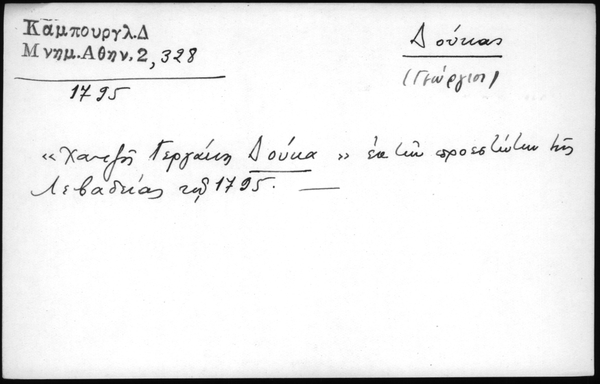 Καμπουργλ.Δ
Μνημ.Αθην.2, 328
1795
Δούκας
(Γεώργιος)
«Χατζῆ Γεργάκη Δούκα» ἐκ τῶν προεστώτων τῆς
Λεβαδείας τῷ 1795. —